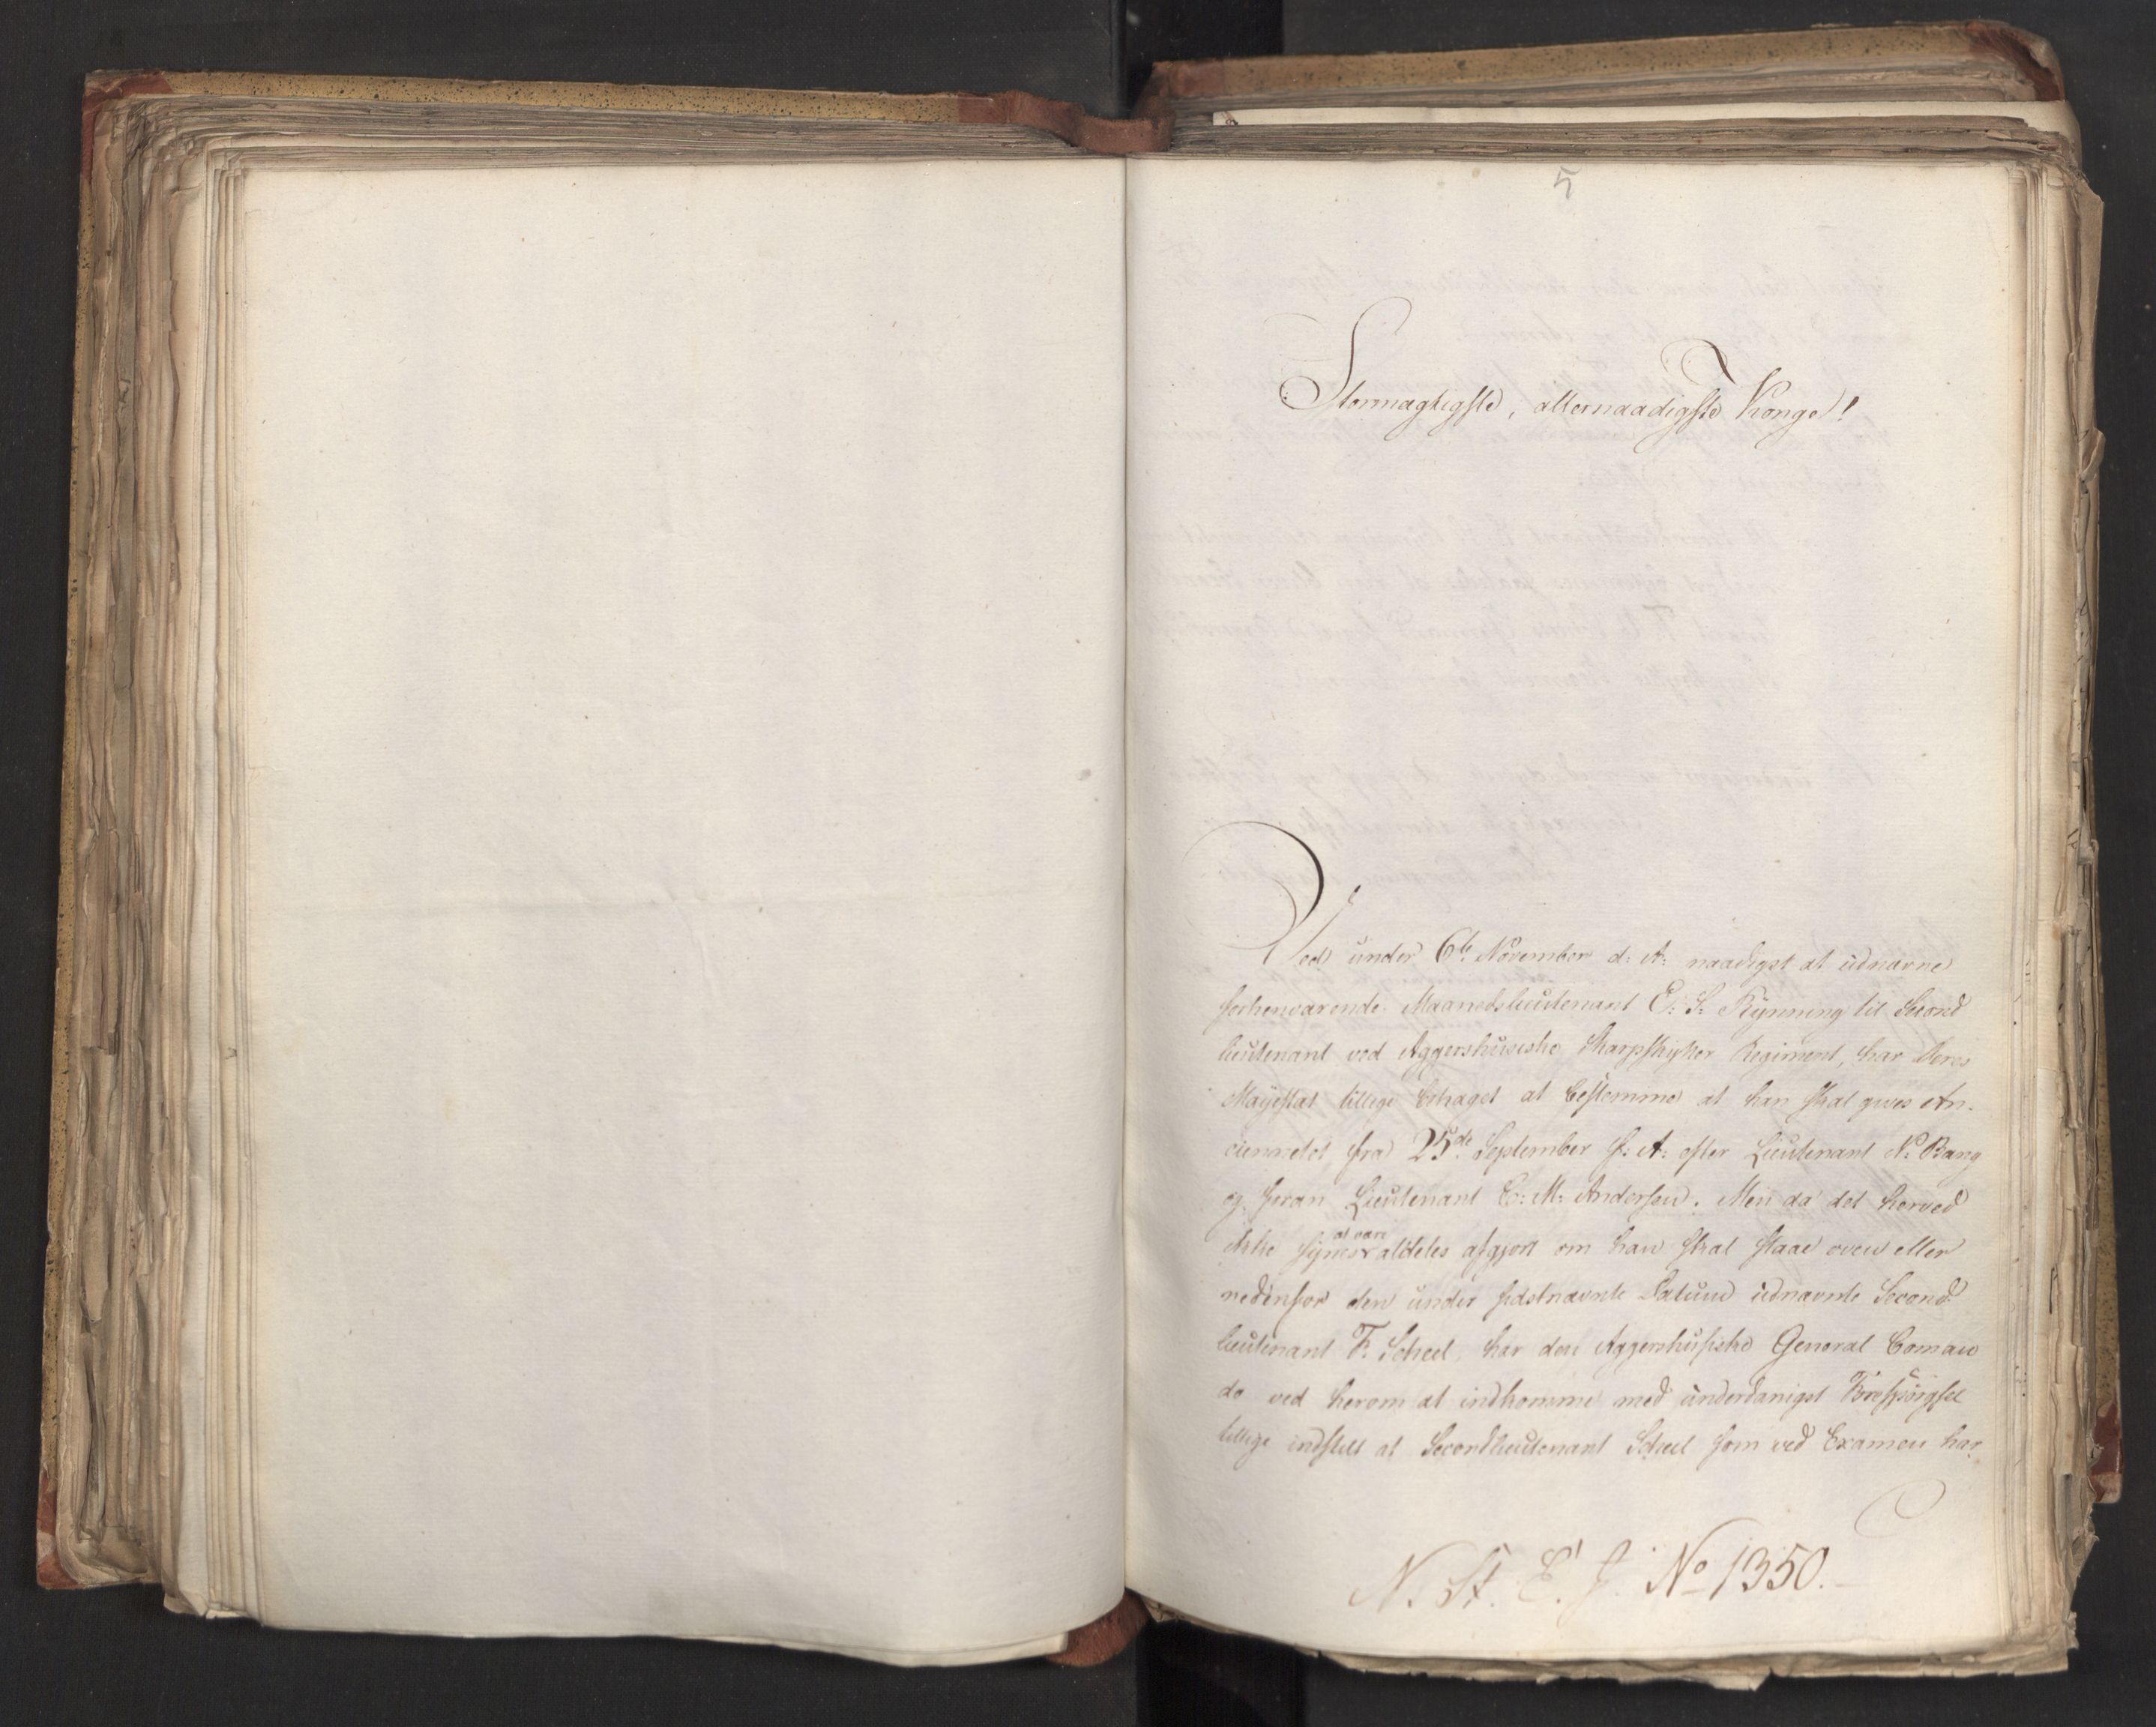 5
Stormægtigste, allernaadigste Konge!
Ved under 6te November d: A: naadigst at udnævne
forhenværende Maanedslieutenant E: S: Rynning til Second
lieutenant ved Aggershusiske Skarpskytter Regiment, har Deres
Majestæt tillige behaget at bestemme at han skal gives An-
ciennetet fra 25de September f: A: efter Lieutenant N: Bang
og foran Lieutenant C: M: Andersen. Men da det herved
ikke synes at være aldeles afgjort om han skal staae oven eller
nedenfor den under sidstnævnte Datum udnævnte Second
lieutenant F. Scheel, har den Aggershusiske General Coman
do ved herom at indkomme med underdanigst Forespörgsel
tillige indstilt at Secondlieutenant Scheel som ved Examen har
N. St. E. J. No 1350.